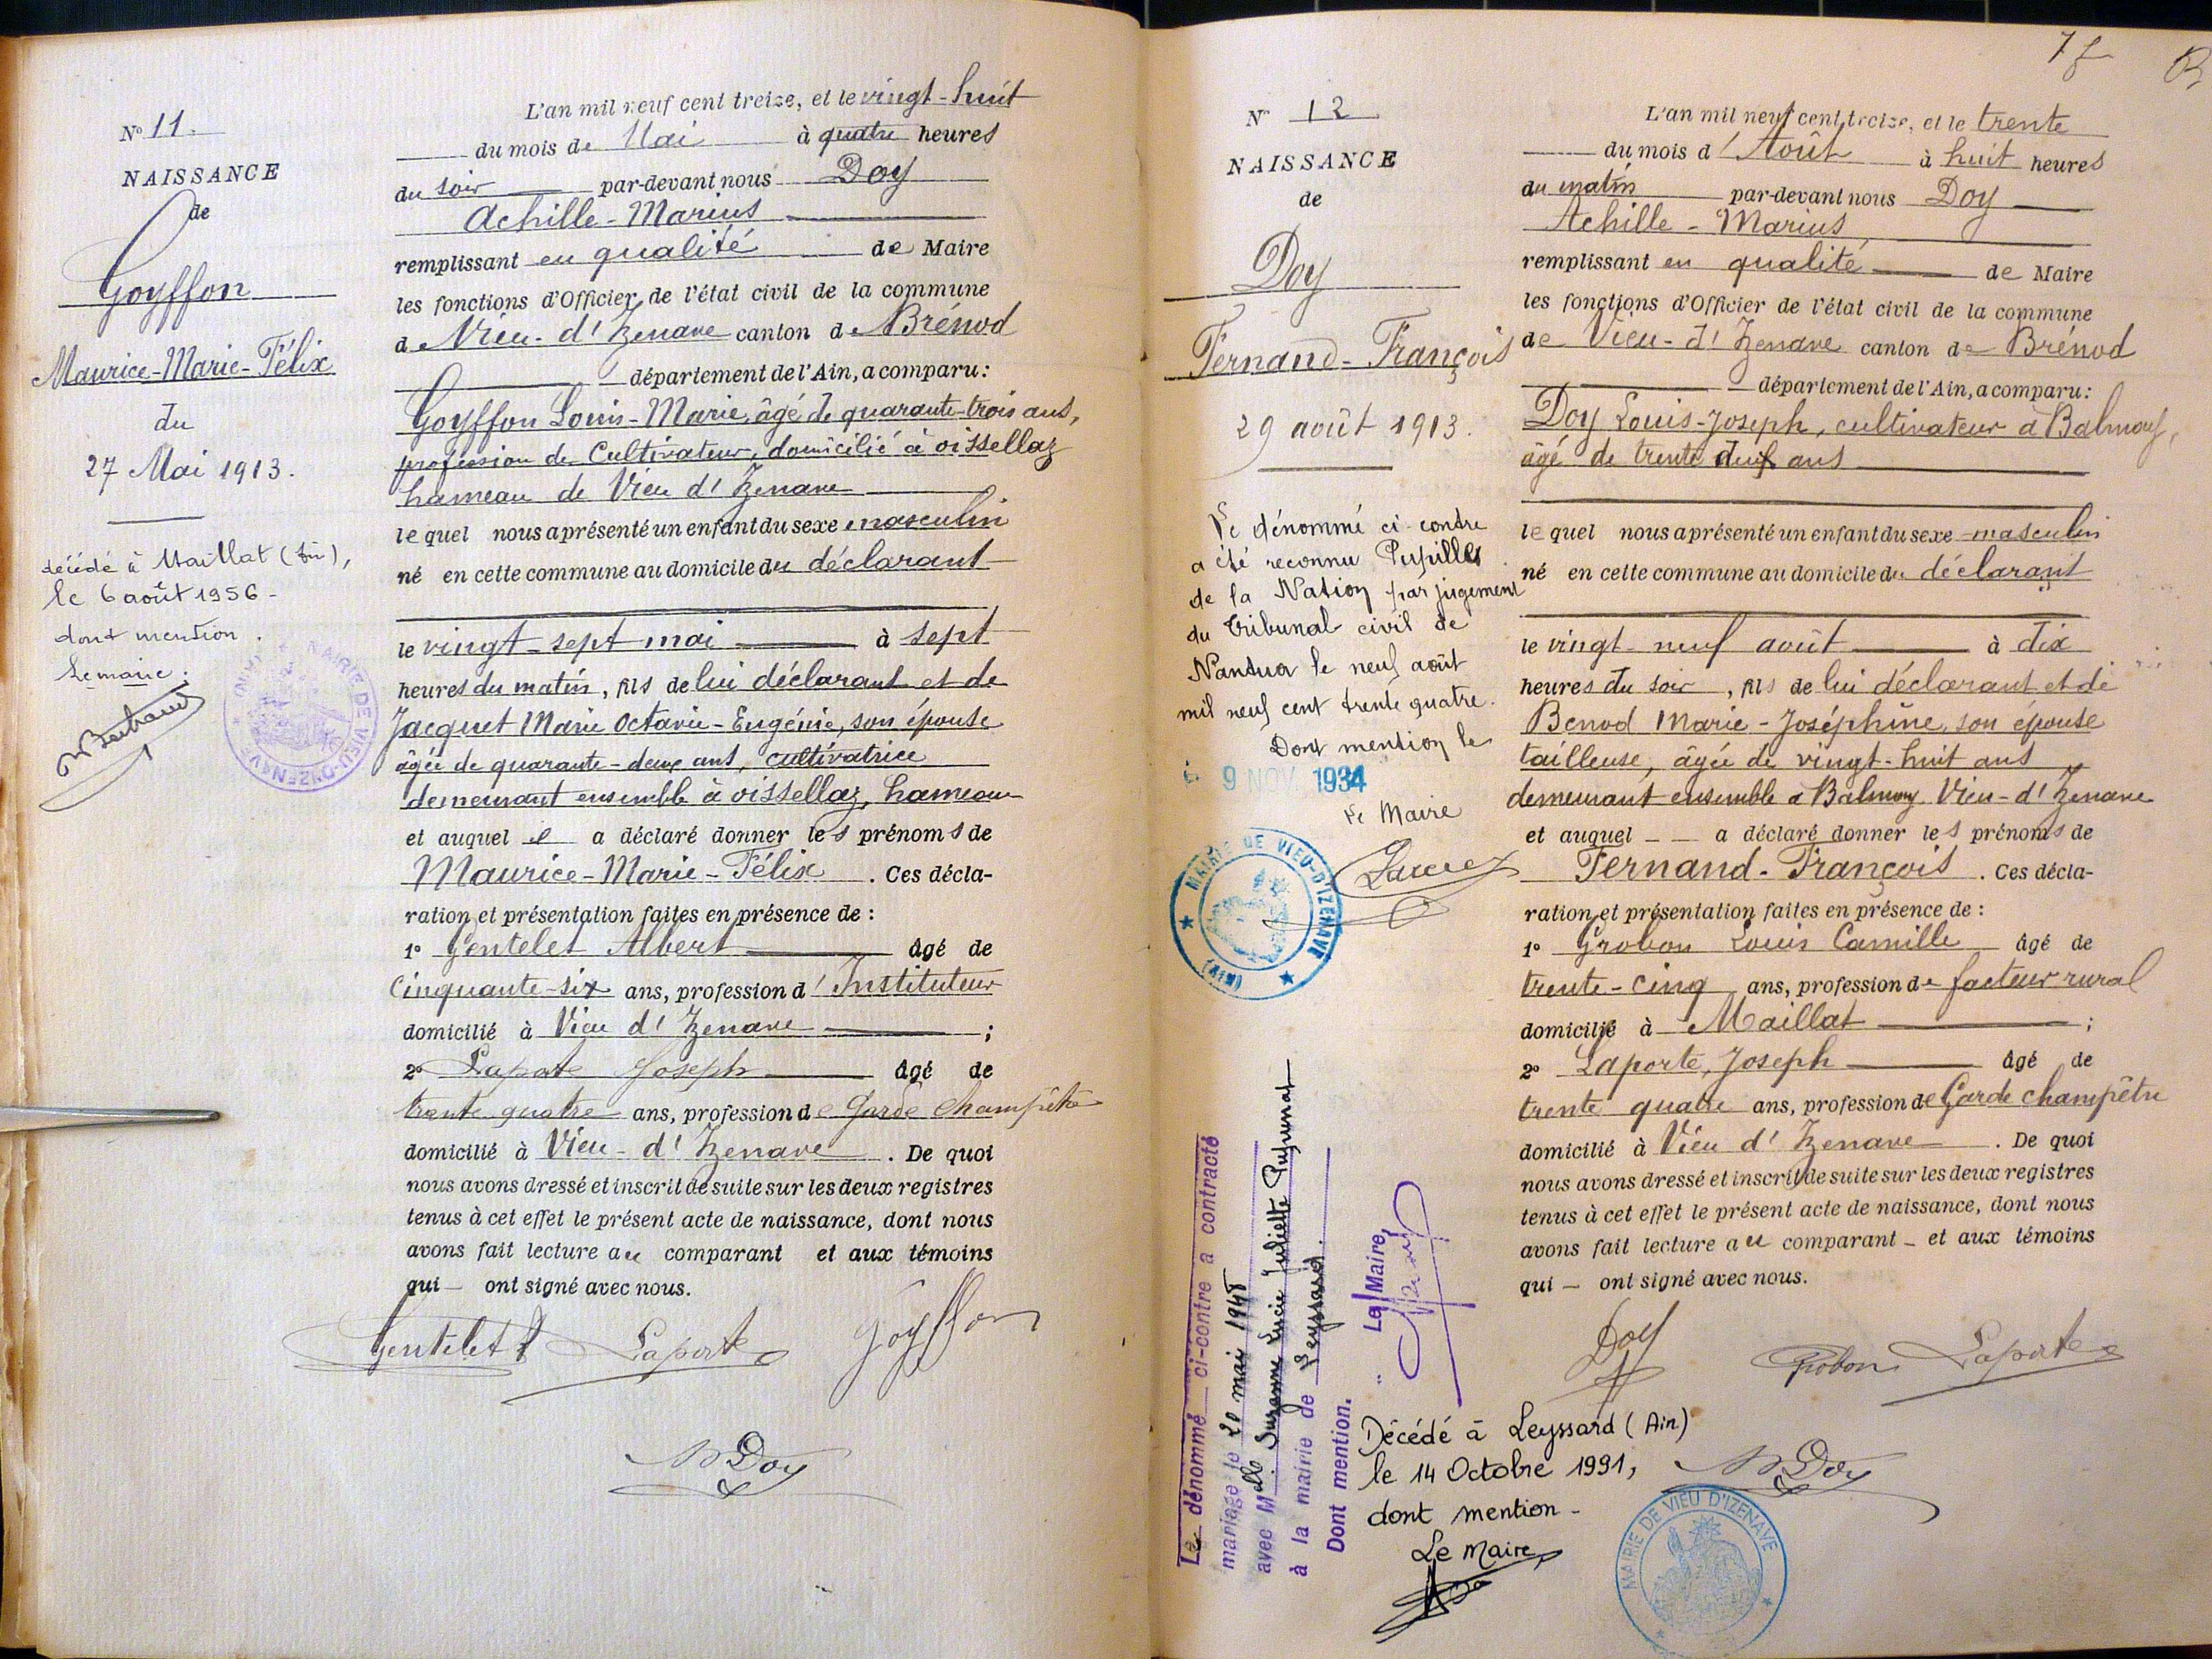 N° 11.
NAISSANCE
de
Goyffon
Maurice-Marie-Félix
du
27 Mai 1913.
décédé à Maillat (Ain),
le 6 août 1956 -
dont mention.
Le maire:
MAIRIE DE VIEU-D'IZENAVE
L'an mil neuf cent treize, et le vingt-huit
du mois de Mai à quatre heures
du soir par-devant nous Doy
Achille-Marius
remplissant en qualité de Maire
les fonctions d'Officier de l'état civil de la commune
de Vieu-d'Izenave canton de Brénod
département de l'Ain, a comparu:
Goyffon Louis-Marie, âgé de quarante-trois ans,
profession de Cultivateur, domicilié à oissellaz
hameau de Vieu d'Izenave
lequel nous a présenté un enfant du sexe masculin
né en cette commune au domicile du déclarant
le vingt-sept mai à sept
heures du matin, fils de lui déclarant et de
Jacquet Marie Octavie-Eugénie, son épouse
âgée de quarante-deux ans, cultivatrice
demeurant ensemble à oissellaz, hameau
et auquel il a déclaré donner les prénoms de
Maurice-Marie-Félix. Ces décla-
ration et présentation faites en présence de:
1° Gentelet Albert âgé de
Cinquante-six ans, profession d'Instituteur
domicilié à Vieu d'Izenave;
2° Laporte Joseph âgé de
trente quatre ans, profession de Garde champêtre
domicilié à Vieu-d'Izenave. De quoi
nous avons dressé et inscrit de suite sur les deux registres
tenus à cet effet le présent acte de naissance, dont nous
avons fait lecture au comparant et aux témoins
qui - ont signé avec nous.
Gentelet Laporte Goyffon
Doy
N° 12
NAISSANCE
de
Doy
Fernand-François
29 août 1913.
Le dénommé ci-contre
a été reconnu Pupille
de la Nation par jugement
du Tribunal civil de
Nantua le neuf août
mil neuf cent trente quatre.
Dont mention le
9 NOV 1934
Le Maire
MAIRIE DE VIEU-D'IZENAVE
(AIN)
Le dénommé ci-contre a contracté
mariage le 20 mai 1945
avec Melle Suzanne Lucie Juliette
à la mairie de Leyssard.
Dont mention.
Le Maire,
L'an mil neuf cent treize, et le trente
du mois d'Août à huit heures
du matin par-devant nous Doy
Achille-Marius
remplissant en qualité de Maire
les fonctions d'Officier de l'état civil de la commune
de Vieu-d'Izenave canton de Brénod
département de l'Ain, a comparu:
Doy Louis-Joseph, cultivateur à Balmay,
âgé de trente ans
lequel nous a présenté un enfant du sexe masculin
né en cette commune au domicile du déclarant
le vingt-neuf août à dix
heures du soir, fils de lui déclarant et de
Benod Marie-Joséphine, son épouse
tailleuse, âgée de vingt-huit ans
demeurant ensemble à Balmay Vieu-d'Izenave
et auquel -- a déclaré donner les prénoms de
Fernand-François. Ces décla-
ration et présentation faites en présence de:
1° Grobon Louis Camille âgé de
trente-cinq ans, profession de facteur rural
domicilié à Maillat;
2° Laporte, Joseph âgé de
trente quatre ans, profession de Garde champêtre
domicilié à Vieu d'Izenave. De quoi
nous avons dressé et inscrit de suite sur les deux registres
tenus à cet effet le présent acte de naissance, dont nous
avons fait lecture au comparant - et aux témoins
qui - ont signé avec nous.
Doy Grobon Laporte
Doy
Décédé à Leyssard (Ain)
le 14 Octobre 1991,
dont mention -
Le Maire,
MAIRIE DE VIEU D'IZENAVE